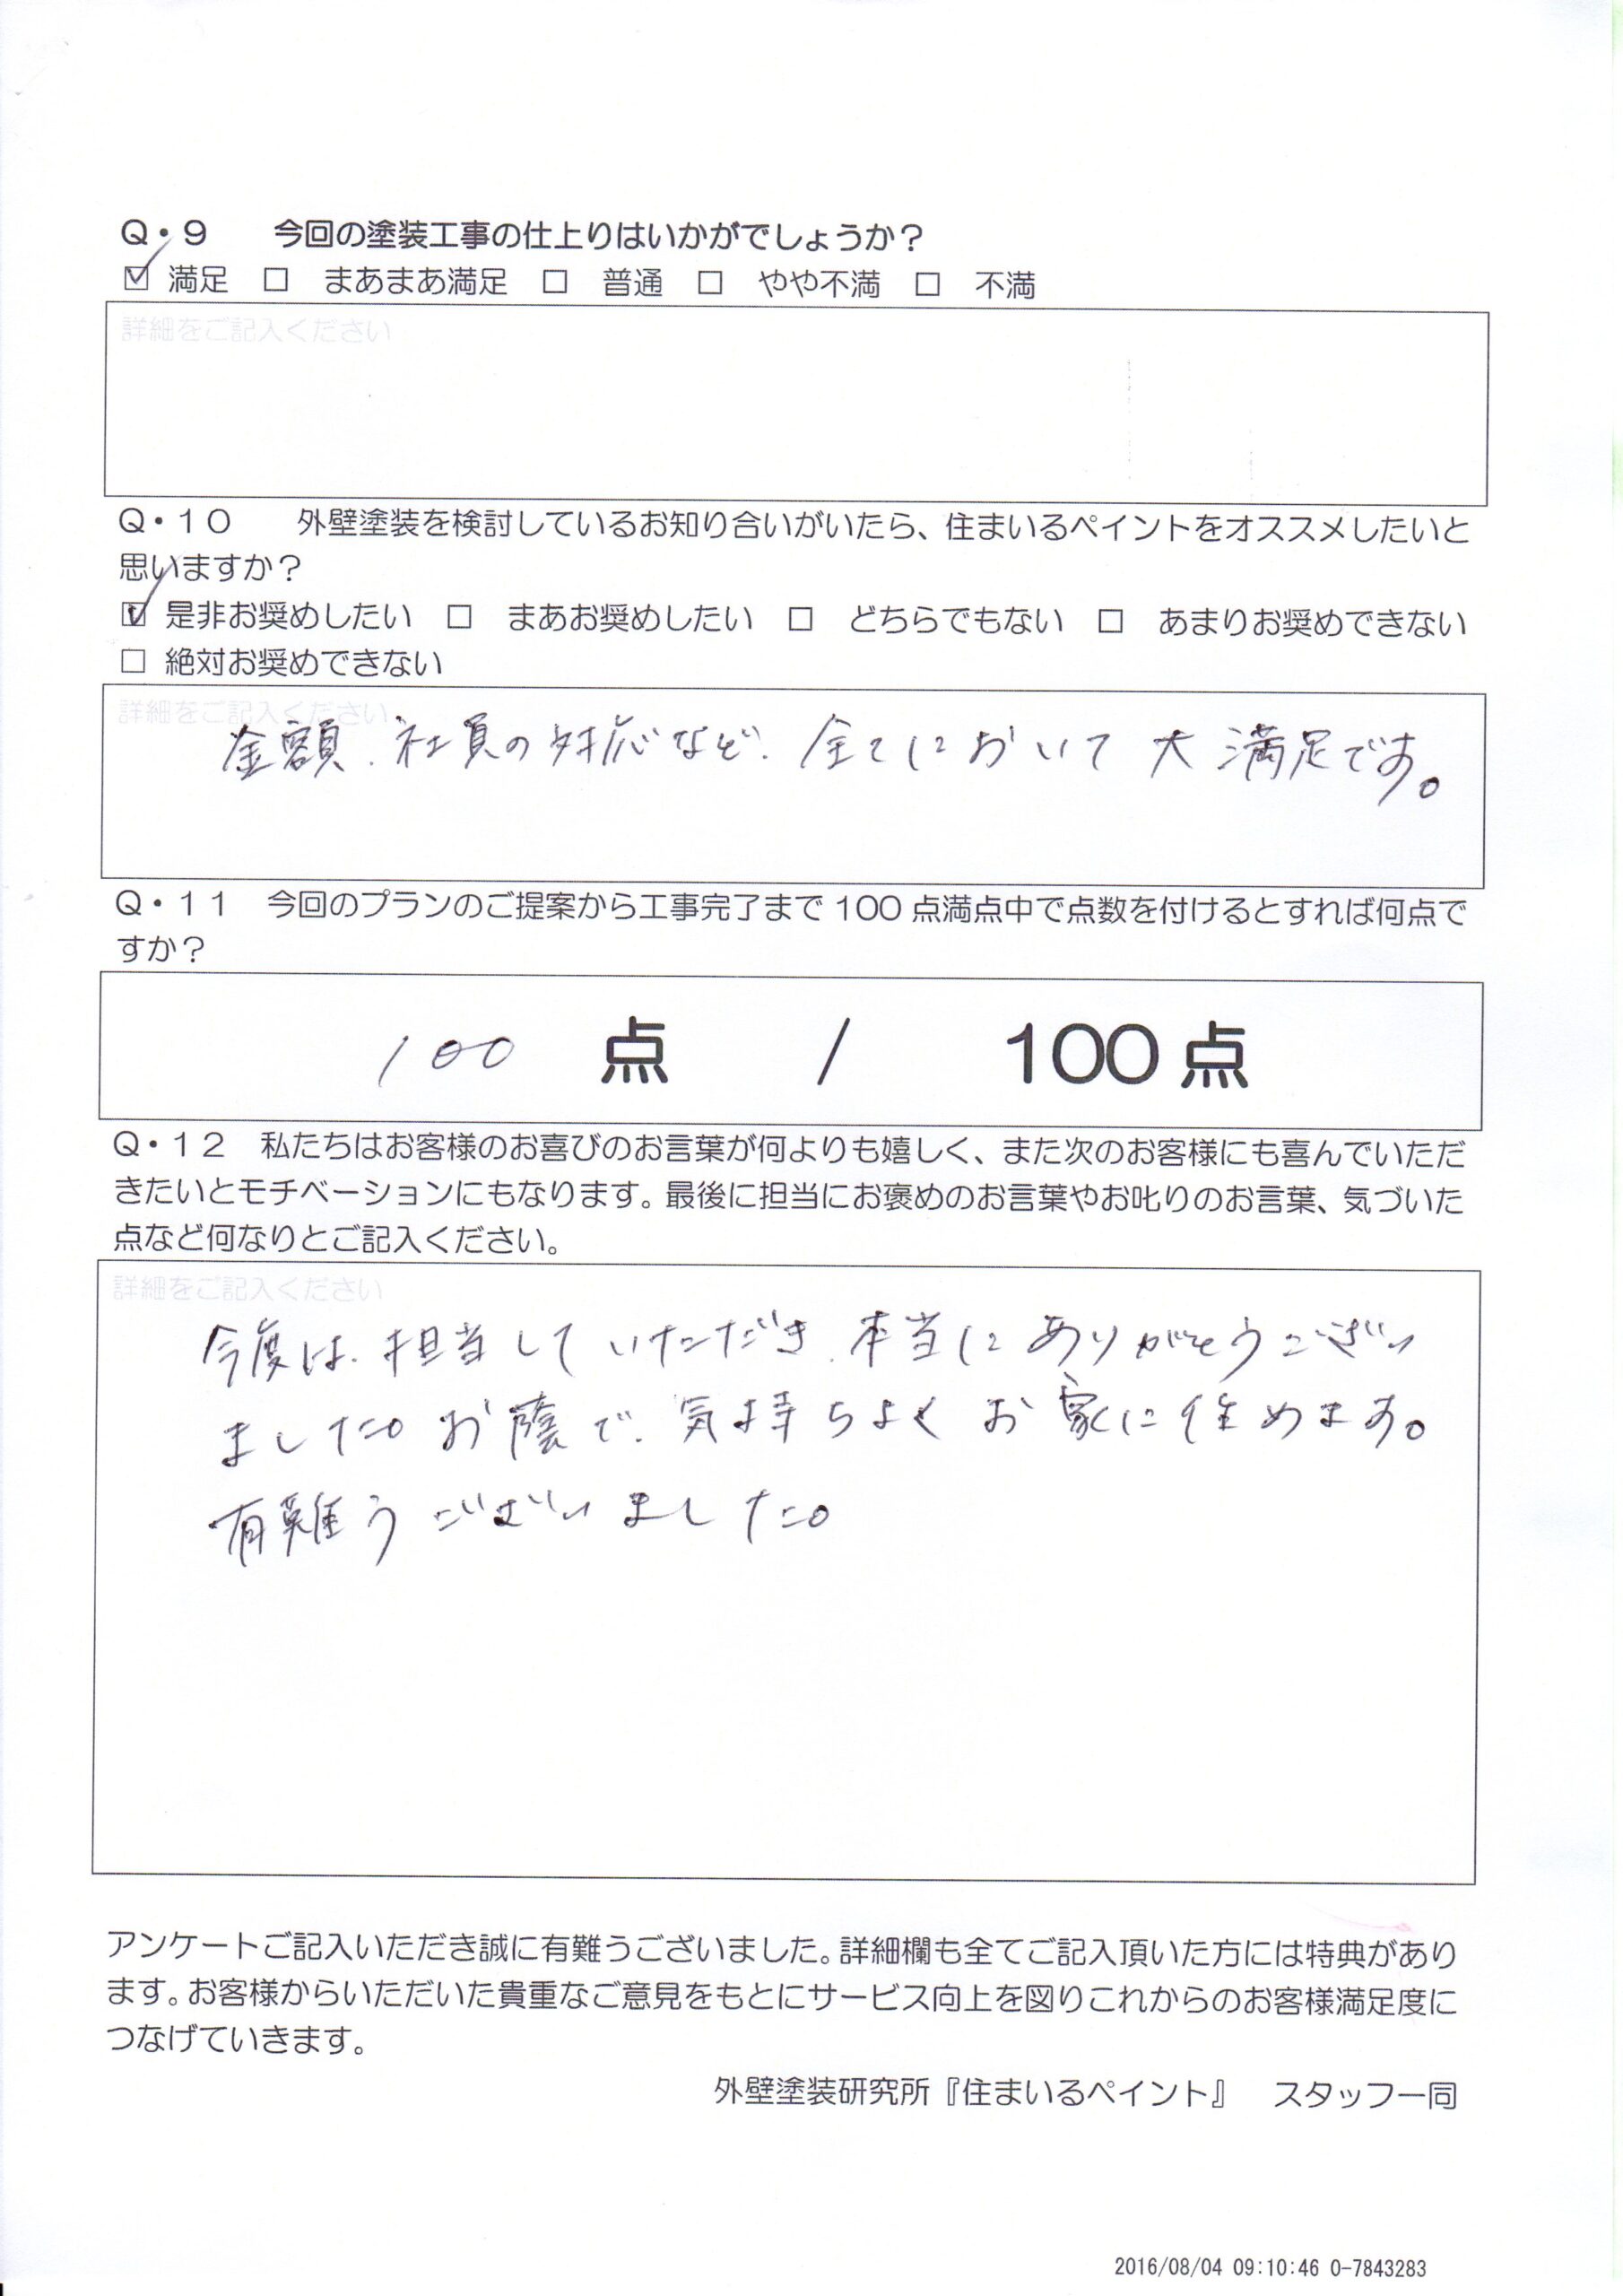 Q・9　今回の塗装工事の仕上りはいかがでしょうか？
☑ 満足 □ まあまあ満足 □ 普通 □ やや不満 □ 不満
詳細をご記入ください
Q・10　外壁塗装を検討しているお知り合いがいたら、住まいるペイントをオススメしたいと
思いますか？
☑ 是非お奨めしたい □ まあお奨めしたい □ どちらでもない □ あまりお奨めできない
□ 絶対お奨めできない
詳細をご記入ください
金額、社員の対応など、全てにおいて大満足です。
Q・11　今回のプランのご提案から工事完了まで100点満点中で点数を付けるとすれば何点で
すか？
100 点 / 100点
Q・12　私たちはお客様のお喜びのお言葉が何よりも嬉しく、また次のお客様にも喜んでいただ
きたいとモチベーションにもなります。最後に担当にお褒めのお言葉やお叱りのお言葉、気づいた
点など何なりとご記入ください。
詳細をご記入ください
今度は、担当していただき、本当にありがとうござい
ました。お蔭で、気持ちよくお家に住めます。
有難うございました。
アンケートご記入いただき誠に有難うございました。詳細欄も全てご記入頂いた方には特典があり
ます。お客様からいただいた貴重なご意見をもとにサービス向上を図りこれからのお客様満足度に
つなげていきます。
外壁塗装研究所『住まいるペイント』　スタッフ一同
2016/08/04 09:10:46 0-7843283